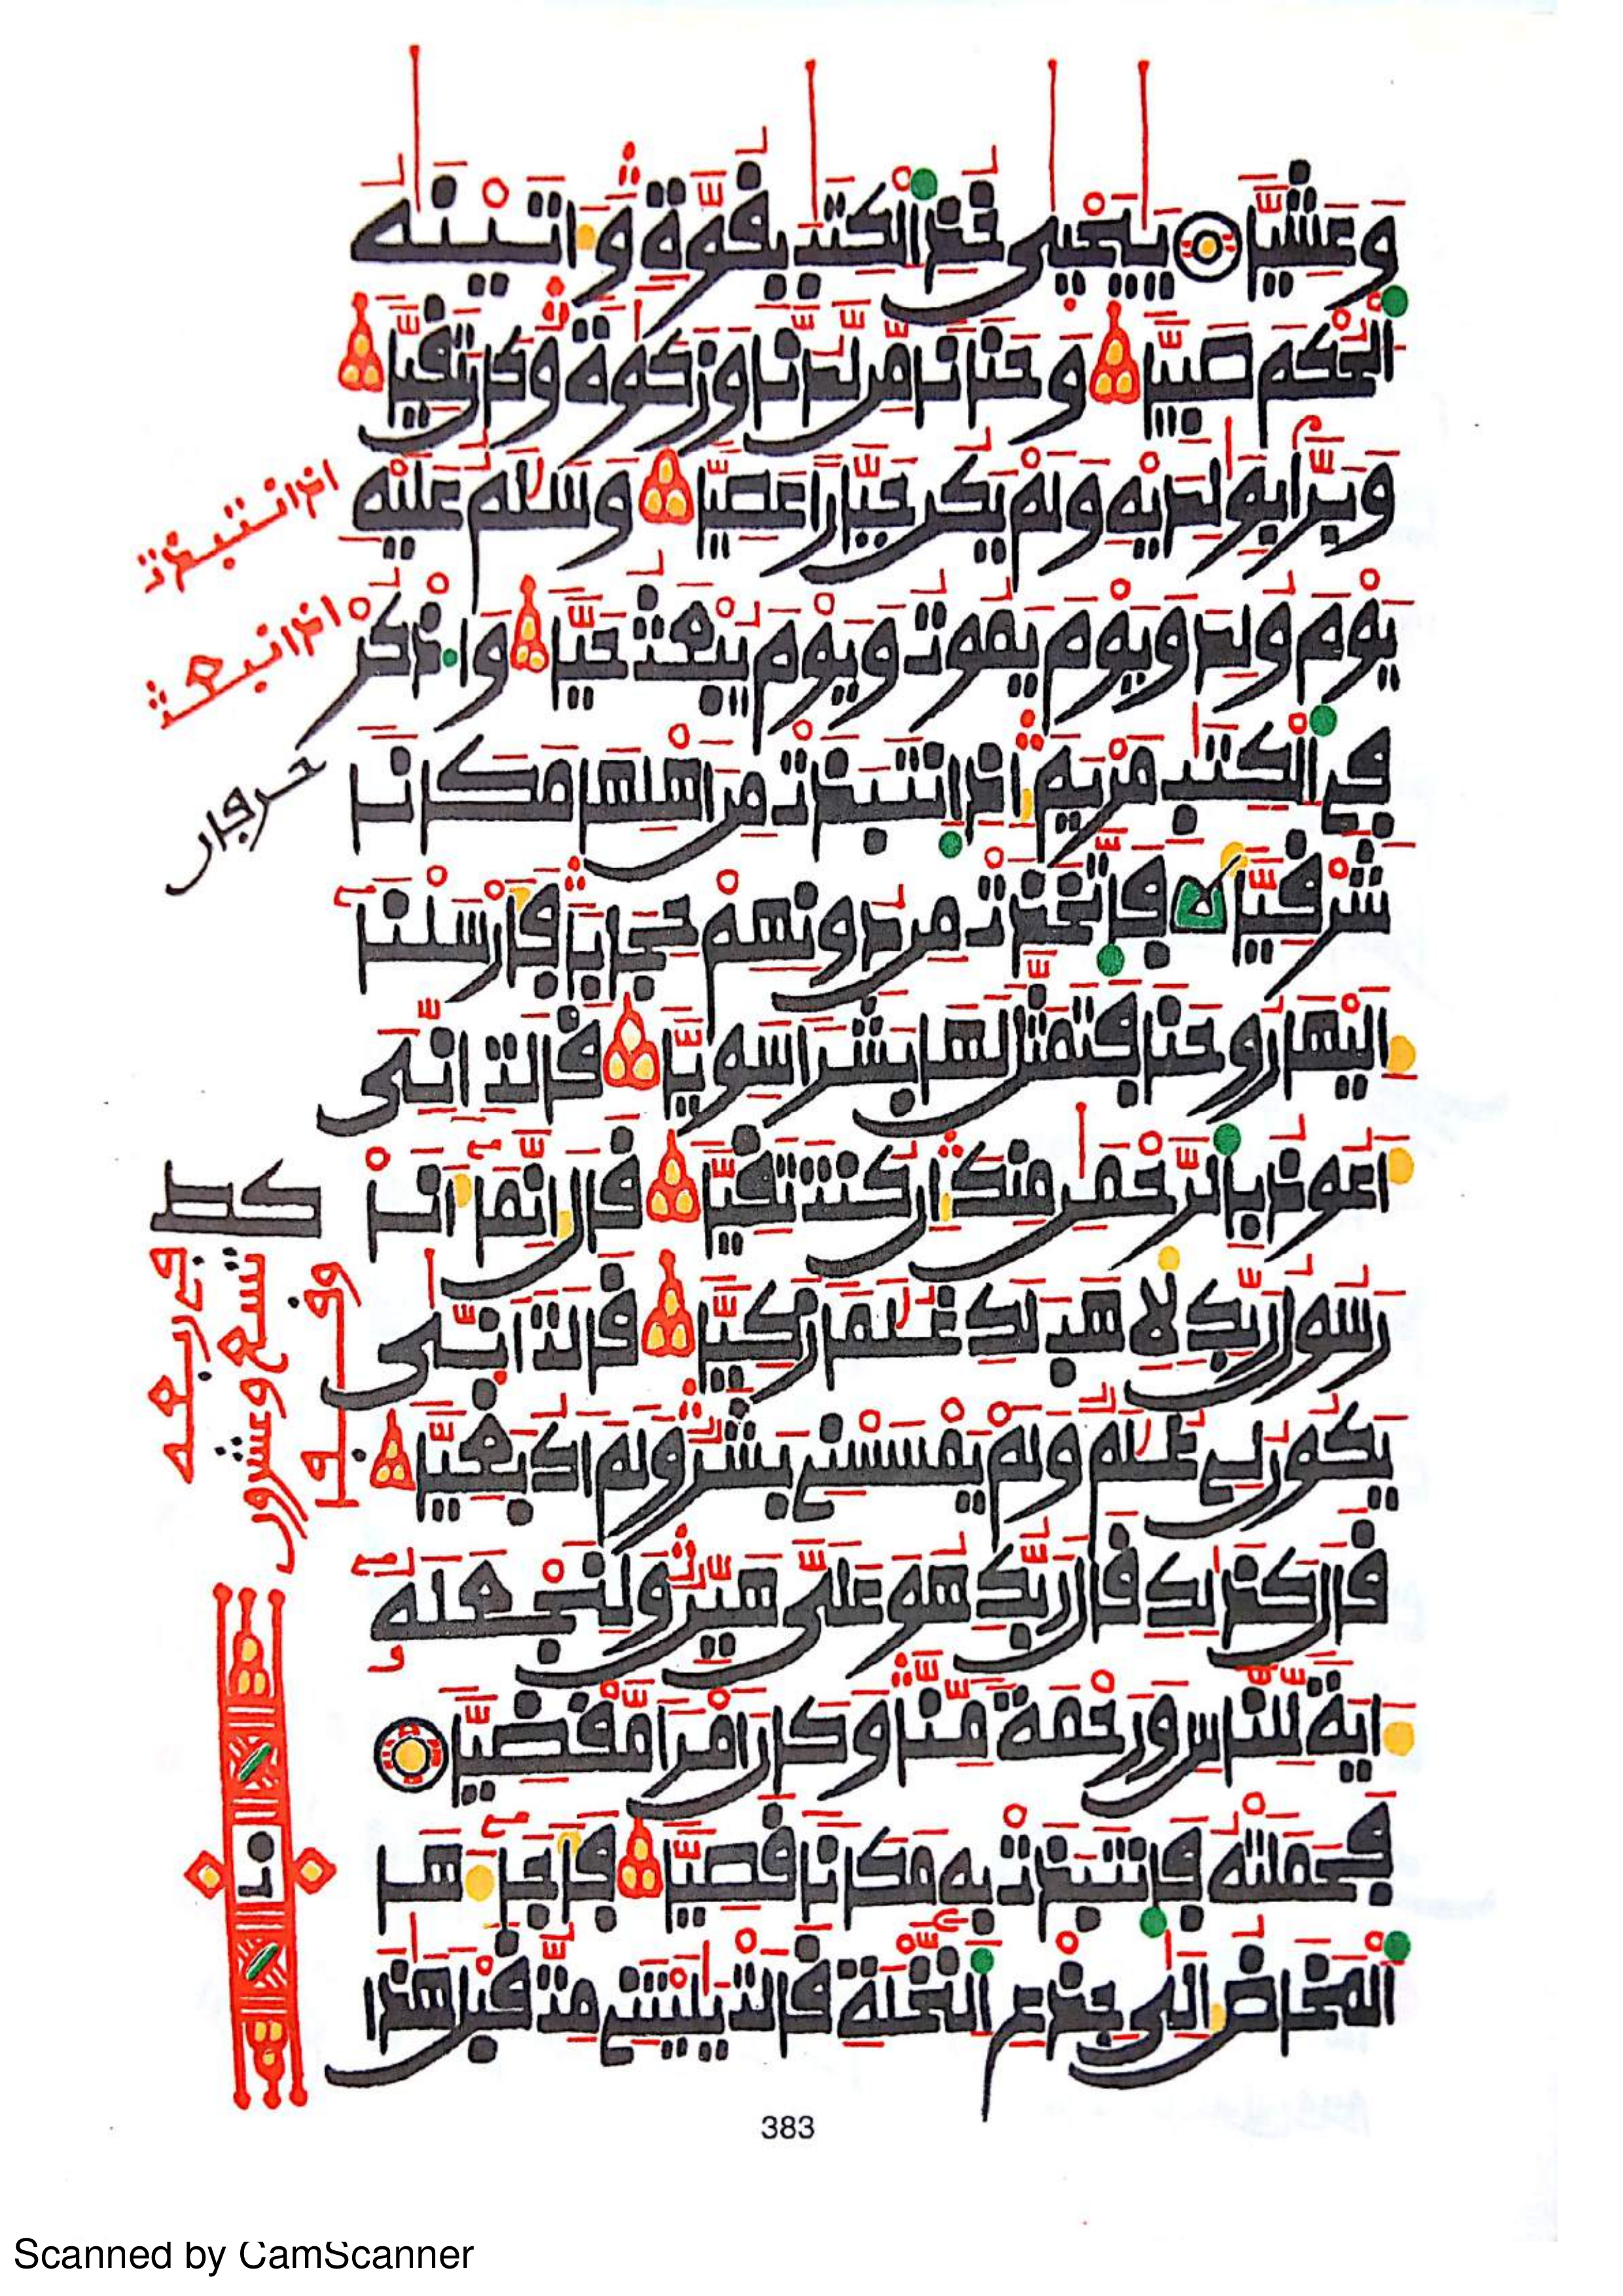 وعشيا يٰيحيىٰ خذ الكتٰب بقوة وءاتينٰه
الحكم صبيا وحنانا من لدنا وزكوة وكان تقيا
وبرا بوٰلديه ولم يكن جبارا عصيا وسلٰم عليه
يوم ولد ويوم يموت ويوم يبعث حيا واذكر
في الكتٰب مريم اذ انتبذت من اهلها مكانا
شرقيا فاتخذت من دونهم حجابا فارسلنا
اليها روحنا فتمثل لها بشرا سويا قالت اني
اعوذ بالرحمٰن منك ان كنت تقيا قال انما انا
رسول ربك لاهب لك غلٰما زكيا قالت انىٰ
يكون لي غلٰم ولم يمسسني بشر ولم اك بغيا
قال كذٰلك قال ربك هو علي هين ولنجعله
ءاية للناس ورحمة منا وكان امرا مقضيا
فحملته فانتبذت به مكانا قصيا فاجاءها
المخاض الىٰ جذع النخلة قالت يٰليتني مت قبل هٰذا
اذ انتبذت
اذ انبعث
حرفان
تسع وعشرون
383
Scanned by CamScanner